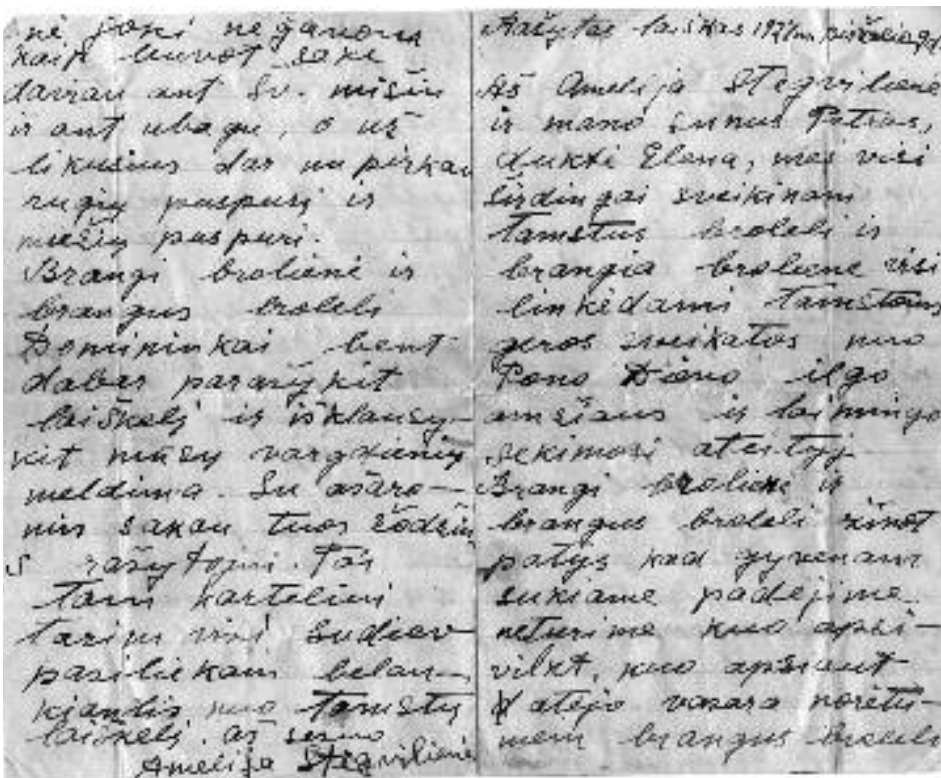 ne joki negavom
kaip buvot
daviau ant šv. mišiu
ir ant ubagu, o už
likusius dar nupirkau
rugių puspurį ir
miežių puspuri.
Brangi broliene ir
brangus broleli
Domininkai bent
dabar parašykit
laiškelį ir išklausy-
kit mūsų vargdienių
meldima. Su ašaro-
mis sakau tuos žodžiu
s rašytojui. Tai
tam karteliui
tariu visi sudiev
pasiliekam belau-
kiandis nuo tamstų
laiškelį. aš
Amelija Stegvilienė
Rašytas laiškas
Aš Amelija Stegvilienė
ir mano sunus Petras,
dukti Elena, mes visi
širdingai sveikinam
tamstus broleli ir
brangia broliene visi
linkėdami tamstoms
geros sveikatos nuo
Pono Dievo ilgo
amžiaus ir laimingo
sekimosi ateityj
Brangi broliene ir
brangus broleli žinot
patys kad gyvenam
sukiame padėjime
neturime kuo apsi-
vilkt, kuo apsiaut
atėjo vasara norėtu-
mem brangus broleli